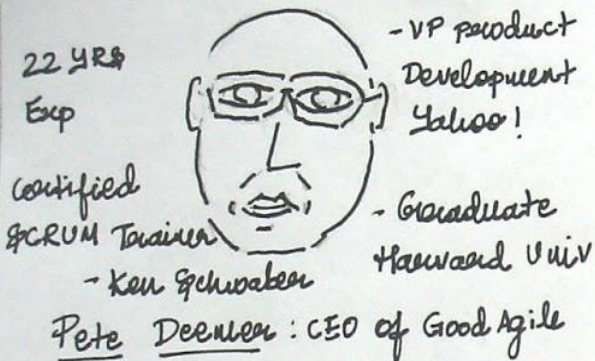 22 YRS
Exp
Certified
SCRUM Trainer
- Ken Schwaber
- VP product
Development
Yahoo!
- Graduate
Harvard Univ
Pete Deemer : CEO of Good Agile